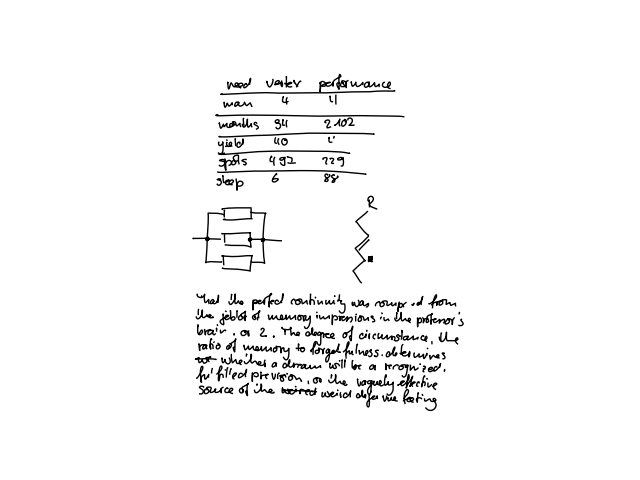 need vertex performance
man 4 4
months 94 2102
yield 40
spots 492 229
sleep 6 88
R
that the perfect continuity was from
the of memory impressions in the professor's
brain. or 2. The degree of circumstance, the
ratio of memory to forgetfulness. determines
whether a dream will be a recognized.
fulfilled prevision, or the vaguely effective
source of the weird deja vue feeling